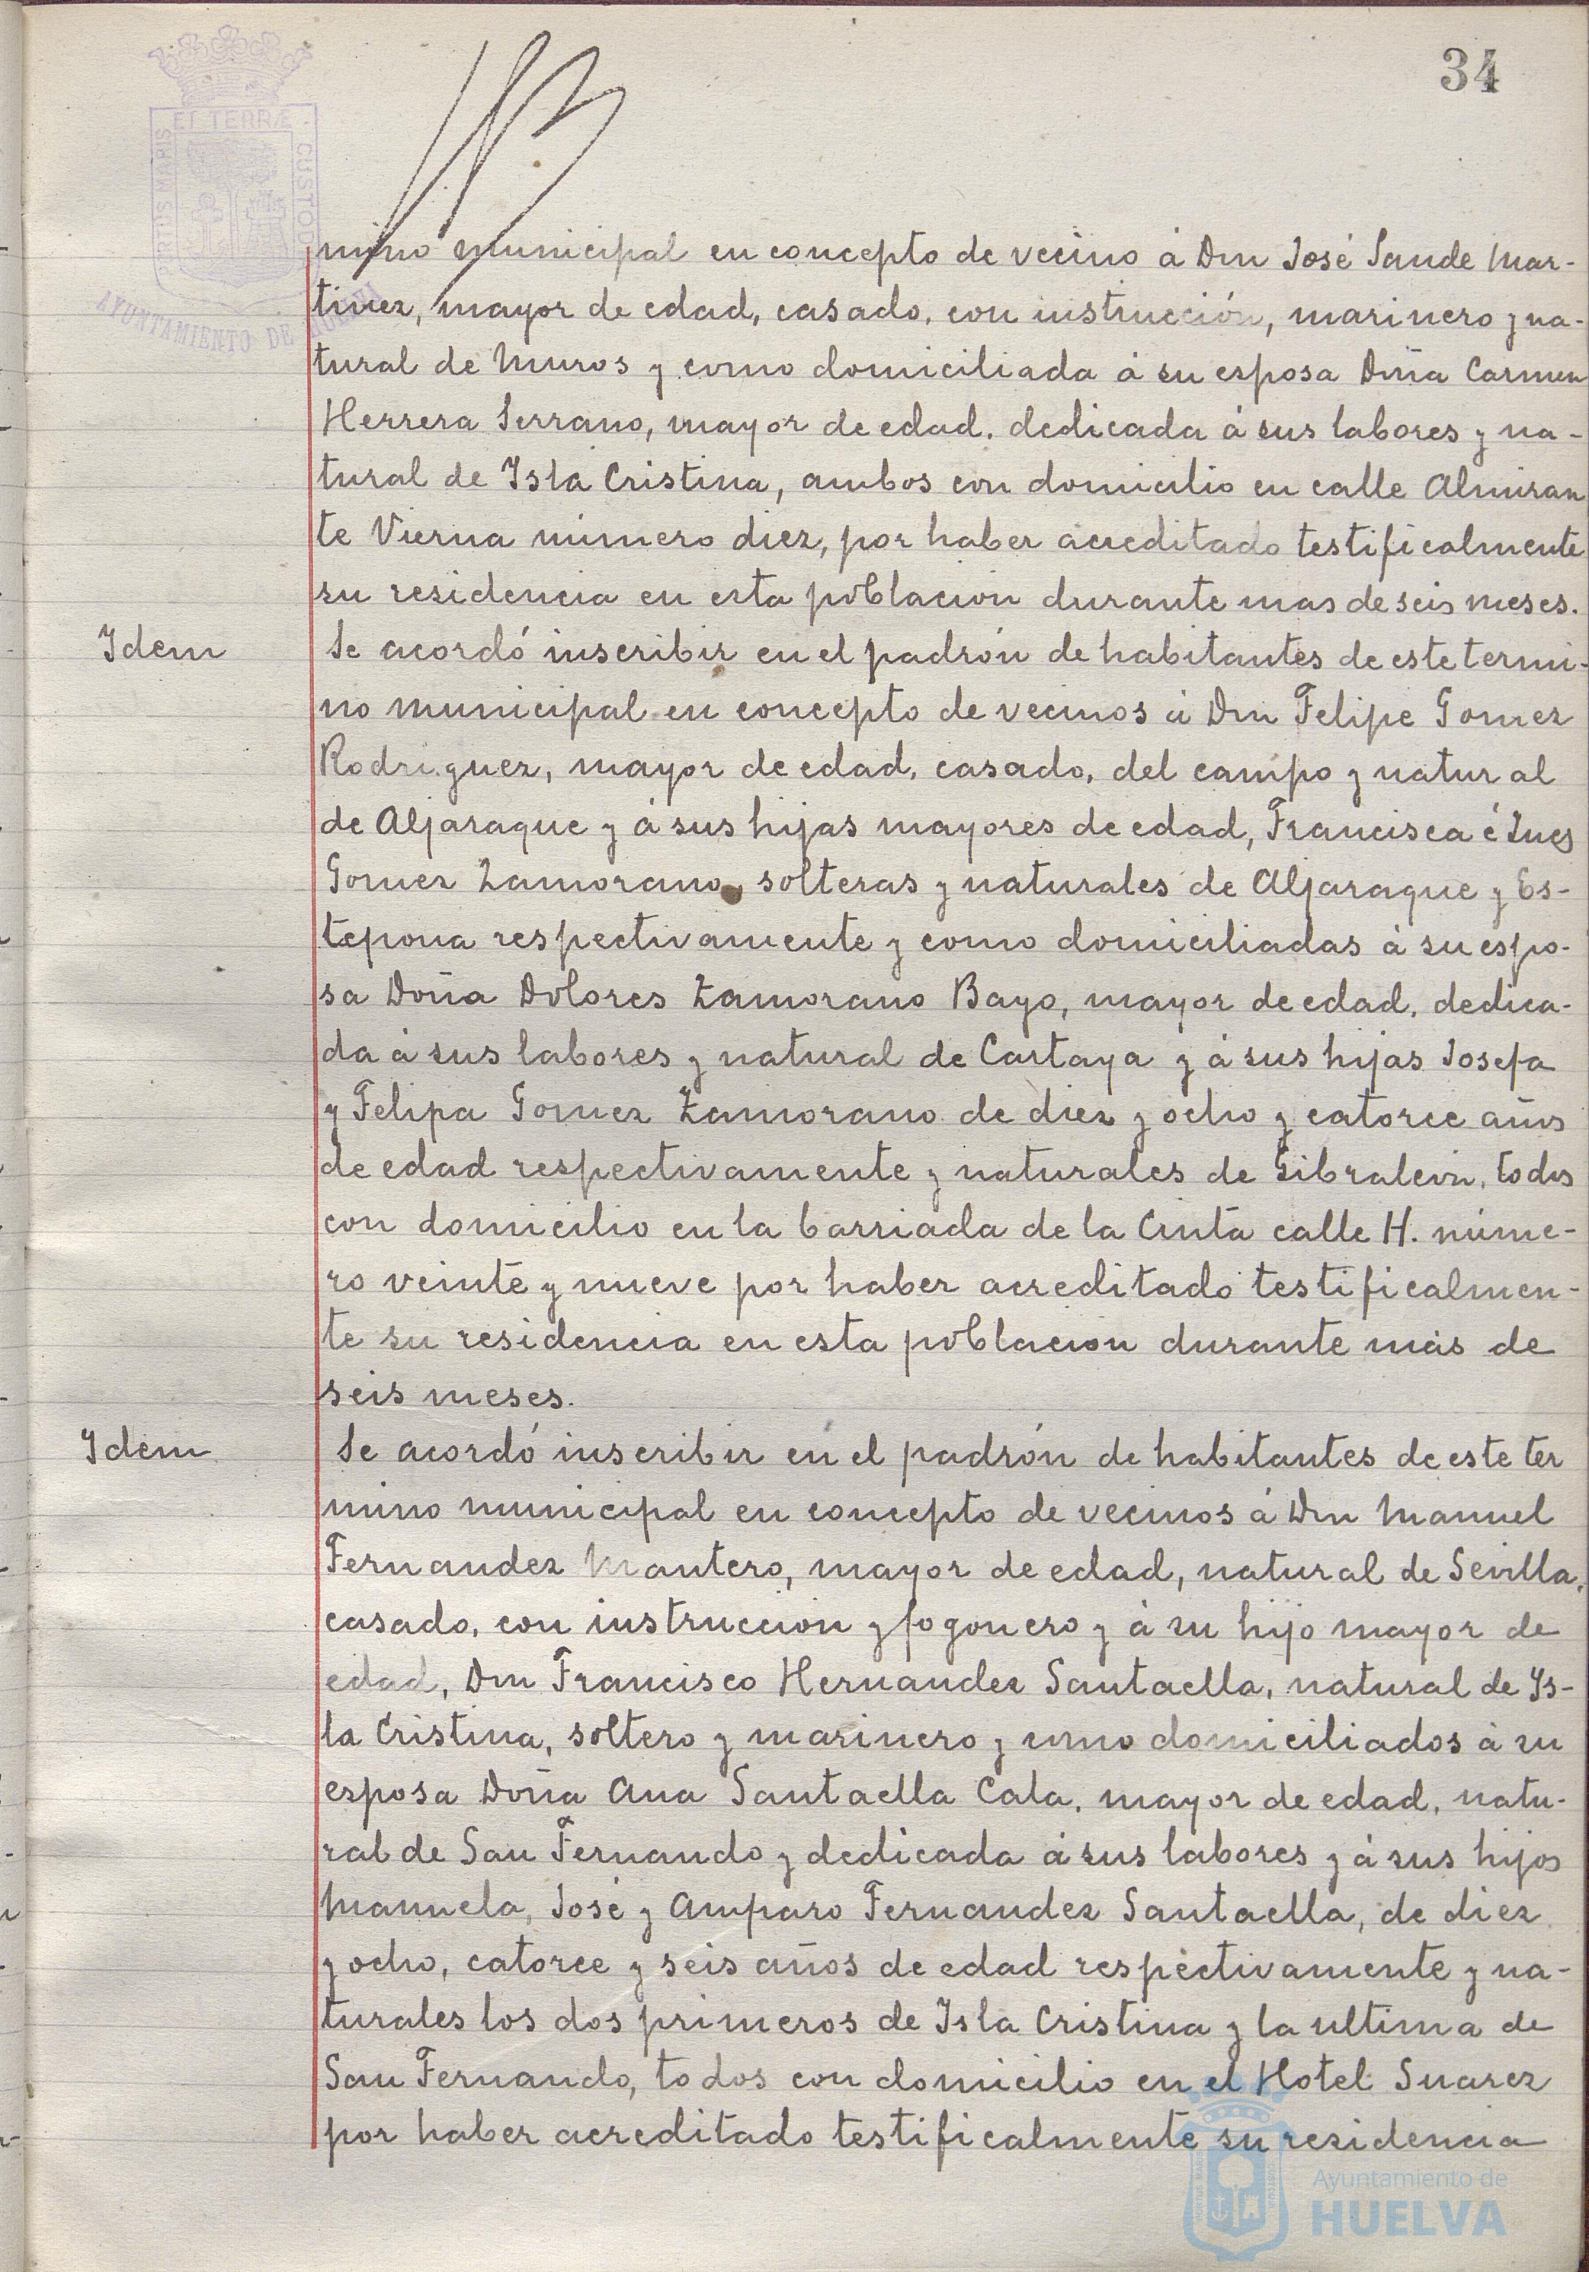 34
PORTUS MARIS ET TERRÆ CUSTODIA
AYUNTAMIENTO DE HUELVA
mino municipal en concepto de vecino á Don José Sande Mar-
tinez, mayor de edad, casado, con instrucción, marinero y na-
tural de Muros y como domiciliada á su esposa Doña Carmen
Herrera Serrano, mayor de edad, dedicada á sus labores y na-
tural de Isla Cristina, ambos con domicilio en calle Almiran
te Vierna número diez, por haber acreditado testificalmente
su residencia en esta población durante mas de seis meses.
Idem
Se acordó inscribir en el padrón de habitantes de este termi-
no municipal en concepto de vecinos á Don Felipe Gomez
Rodriguez, mayor de edad, casado, del campo y natural
de Aljaraque y á sus hijas mayores de edad, Francisca é Ines
Gomez Zamorano, solteras y naturales de Aljaraque y Es-
tepona respectivamente y como domiciliadas á su espo-
sa Doña Dolores Zamorano Bayo, mayor de edad, dedica-
da á sus labores y natural de Cartaya y á sus hijas Josefa
y Felipa Gomez Zamorano de diez y ocho y catorce años
de edad respectivamente y naturales de Gibraleón, todos
con domicilio en la barriada de la Cinta calle H. núme-
ro veinte y nueve por haber acreditado testificalmen-
te su residencia en esta población durante más de
seis meses.
Idem
Se acordó inscribir en el padrón de habitantes de este ter
mino municipal en concepto de vecinos á Don Manuel
Fernandez Mantero, mayor de edad, natural de Sevilla,
casado, con instrucción y fogonero y á su hijo mayor de
edad, Don Francisco Hernandez Santaella, natural de Is-
la Cristina, soltero y marinero y como domiciliados á su
esposa Doña Ana Santaella Cala, mayor de edad, natu-
ral de San Fernando y dedicada á sus labores y á sus hijos
Manuela, José y Amparo Fernandez Santaella, de diez
y ocho, catorce y seis años de edad respectivamente y na-
turales los dos primeros de Isla Cristina y la ultima de
San Fernando, todos con domicilio en el Hotel Suarez
por haber acreditado testificalmente su residencia
Ayuntamiento de
HUELVA